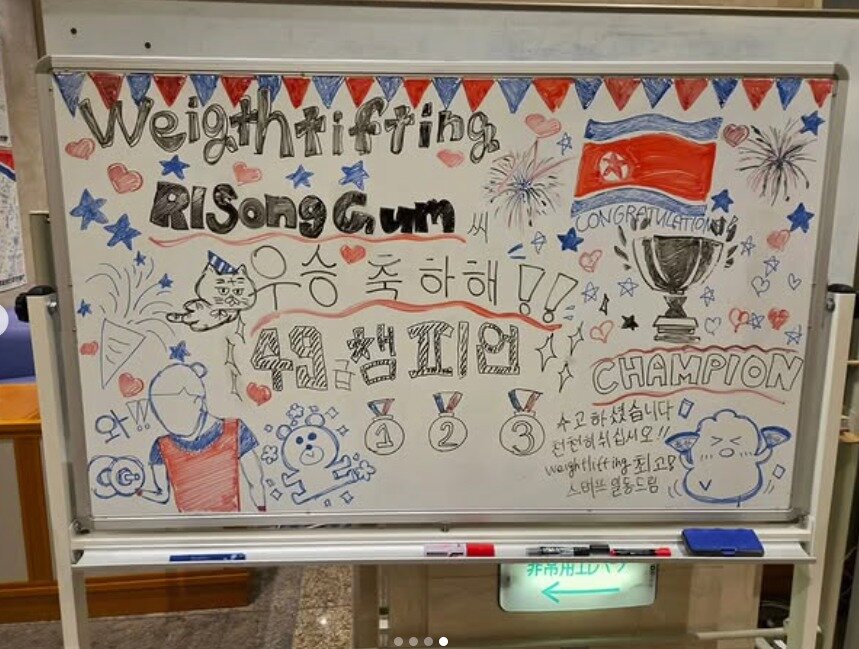 Weigthtifting
RISongGum 씨
우승 축하해!!
49급 챔피언
CONGRATULATION
CHAMPION
와!!
1 2 3
수고하셨습니다
천천히 쉬십시오!!
weightlifting 최고!
스태프 일동드림
非常用